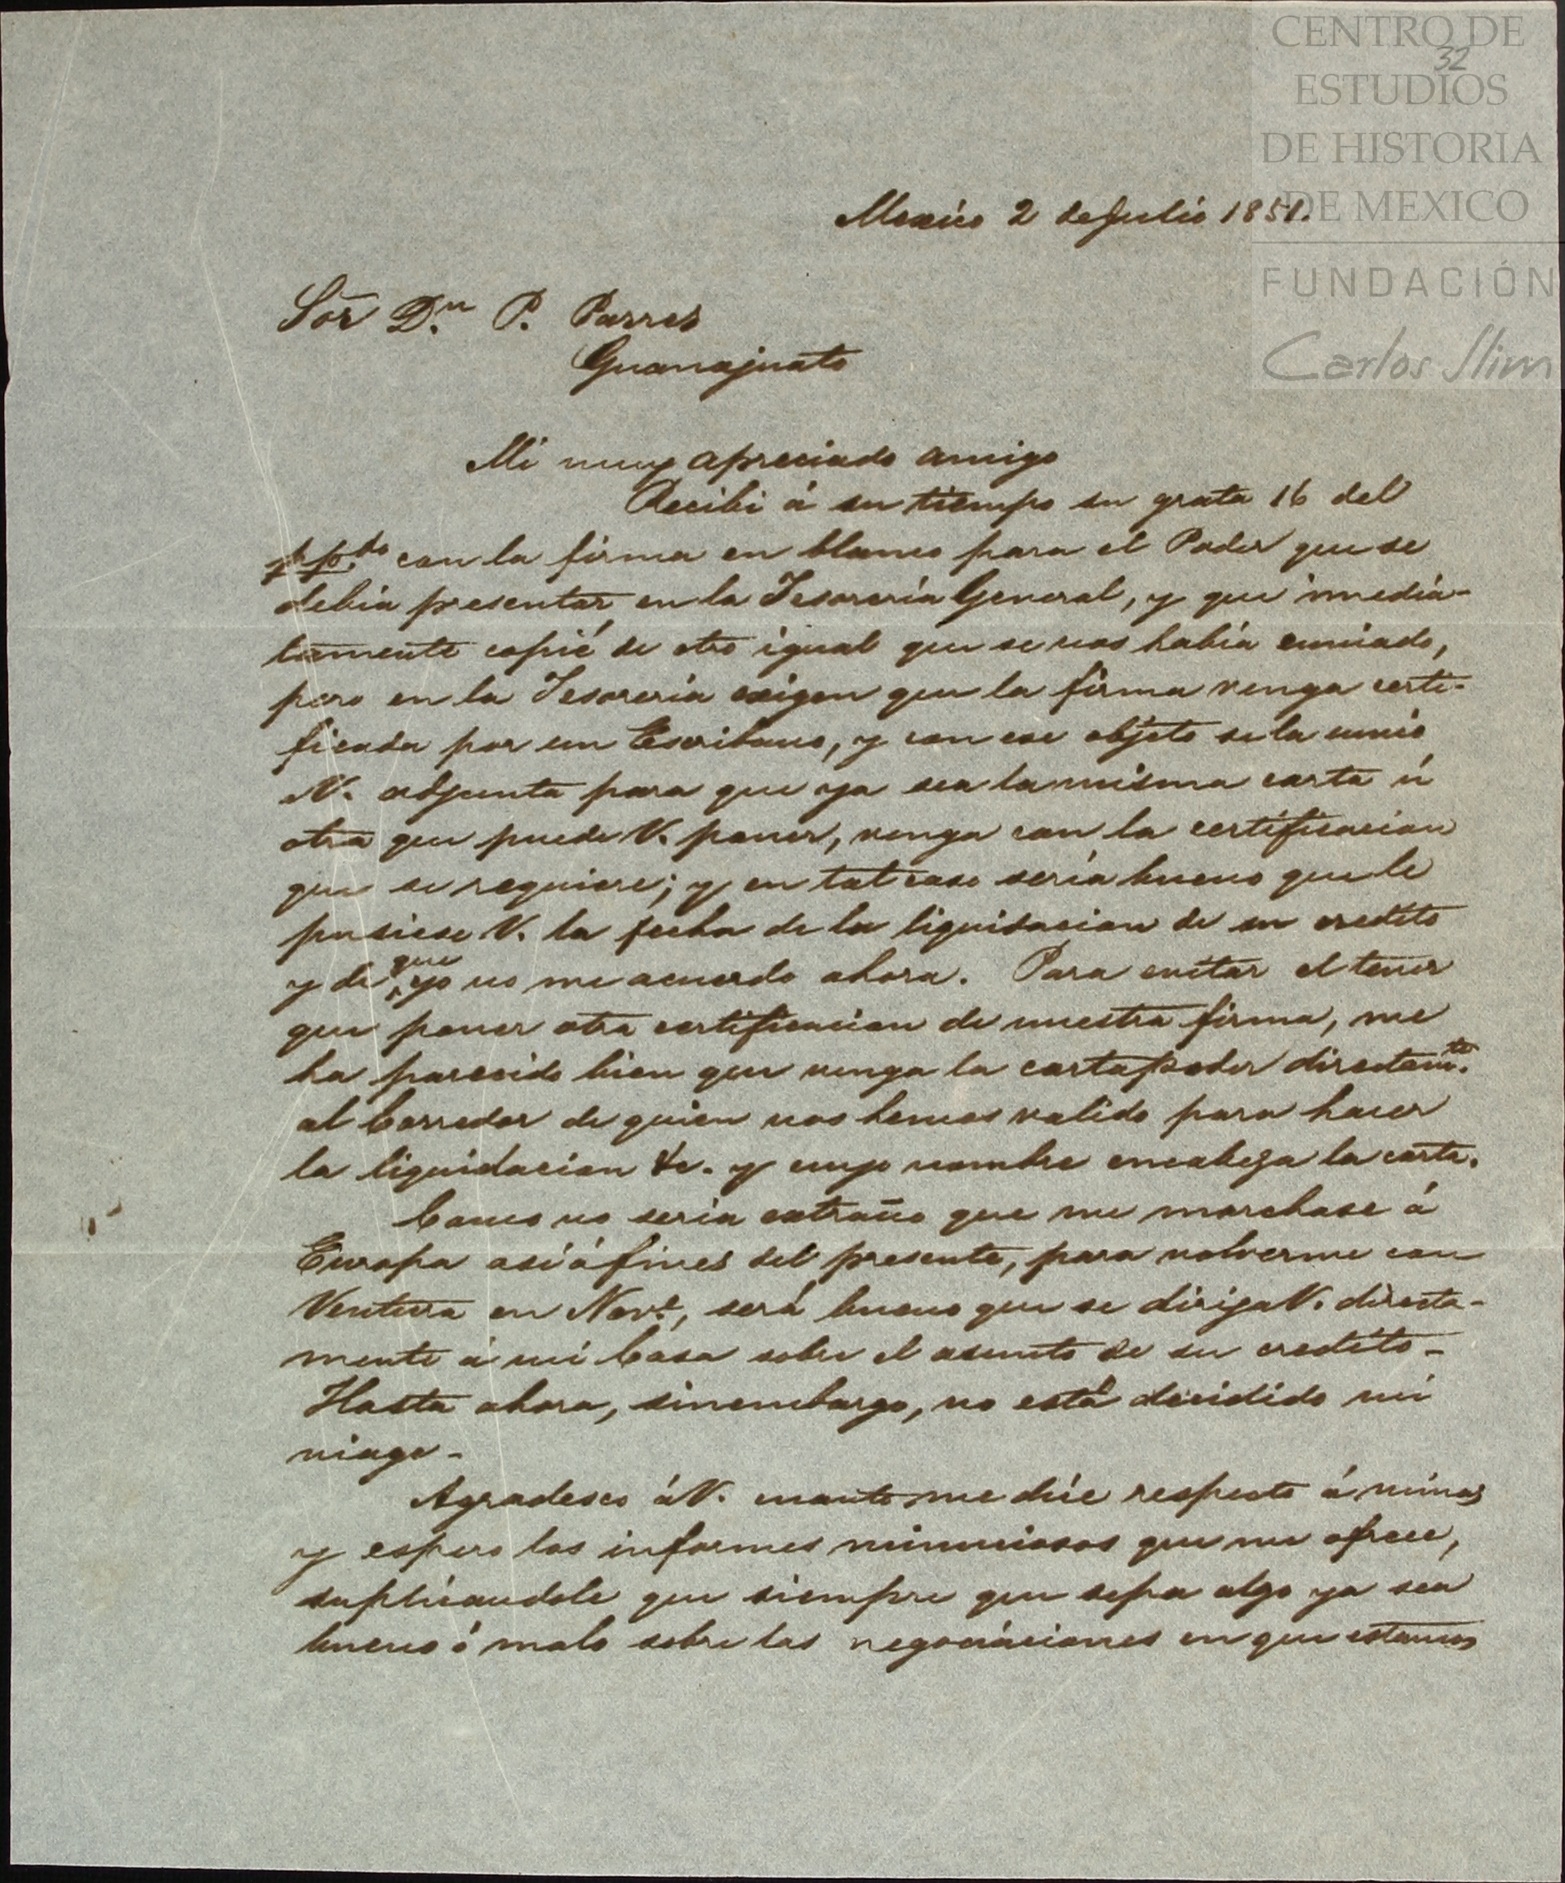 CENTRO DE
32
ESTUDIOS
DE HISTORIA
DE MEXICO
FUNDACIÓN
Carlos Slim
Mexico 2 de Julio 1851.
Sõr D.n P. Parres
Guanajuato
Mi muy apreciado amigo
Recibi á su tiempo su grata 16 del
pp.do con la firma en blanco para el Poder que se
debia presentar en la Tesoreria General, y que inmedia-
tamente copié de otro igual que se nos habia enviado,
pero en la Tesoreria exigen que la firma venga certi-
ficada por un Escribano, y con ese objeto se la envio
V. adjunta para que ya sea la misma carta ú
otra que puede V. poner, venga con la certificacion
que se requiere; y en tal caso sería bueno que le
pusiese V. la fecha de la liquidacion de su credito
y de que yo no me acuerdo ahora. Para evitar el tener
que poner otra certificacion de nuestra firma, me
ha parecido bien que venga la cartapoder directam.te
al Corredor de quien nos hemos valido para hacer
la liquidacion &c. y cuyo nombre encabeza la carta.
Como no seria extraño que me marchase á
Europa asi á fines del presente, para volverme con
Ventura en Nov.e, será bueno que se dirija V. directa-
mente á mi Casa sobre el asunto de su credito-
Hasta ahora, sinembargo, no está decidido mi
viage-
Agradesco á V. cuanto me dice respecto á minas
y espero los informes minuciosos que me ofrece,
suplicandole que siempre que sepa algo ya sea
bueno ó malo sobre las negociaciones en que estamos